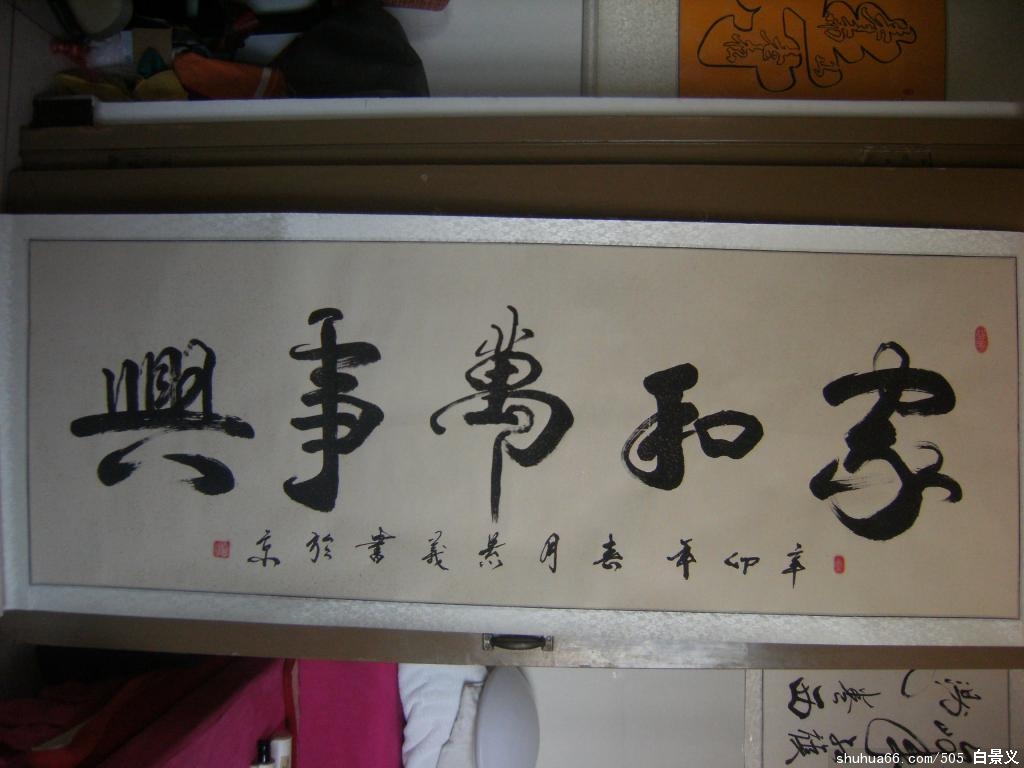 家和萬事興
辛卯年春月景義書於京
shuhua66.com/505 白景义